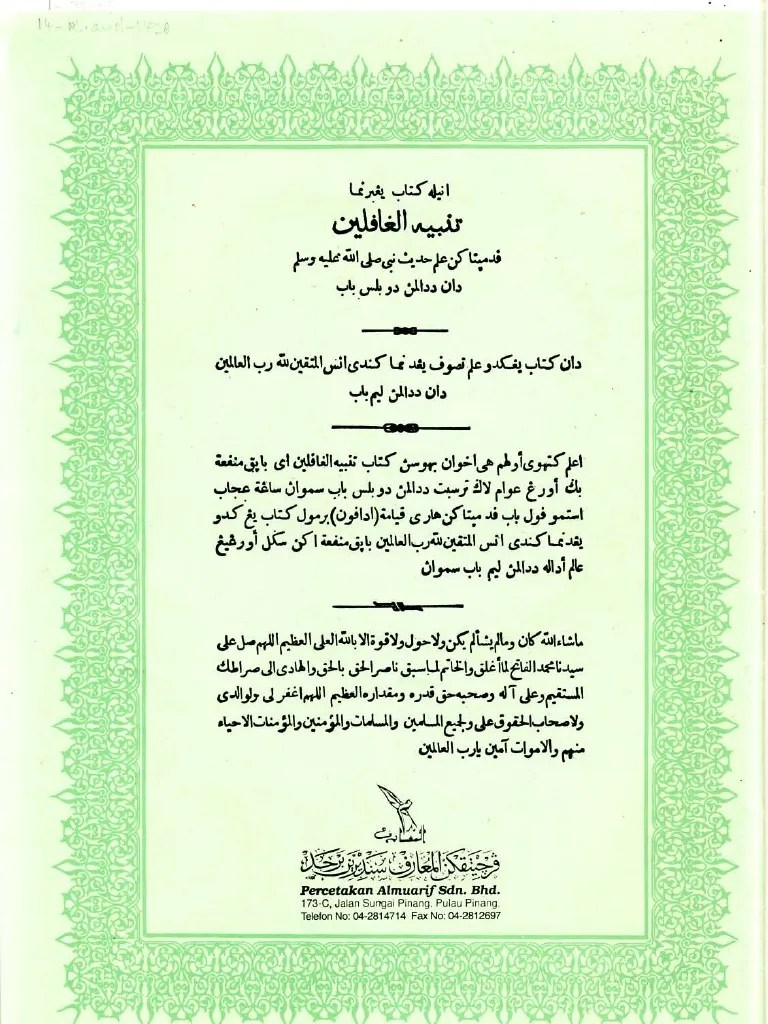 انيله كتاب يڠبرنما
تنبيه الغافلين
قد مپتاكن علم حديث نبي صلى الله عليه وسلم
دان ددالمڽ دو بلس باب
دان كتاب يڠكدو علم تصوف يڠد نما كندى انس المتقين لله رب العالمين
دان ددالمڽ ليم باب
اعلم كتهوى أولهم هى اخوان بهوسڽ كتاب تنبيه الغافلين اى باپق منفعة
بڬ أورڠ عوام لاڬ ترسبت ددالمڽ دو بلس باب سموان ساڠة عجاب
استمو فول باب قد مپتاكن هارى قيامة (ادافون) برمول كتاب يڠ كدو
يڠد نما كندى انس المتقين لله رب العالمين باپق منفعة اكن سكل أورڠيڠ
عالم أداله ددالمڽ ليم باب سموان
ماشاء الله كان ومالم يشألم يكن ولاحول ولاقوة الا بالله العلى العظيم اللهم صل على
سيدنا محمد الفاتح لما أغلق والخاتم لماسبق ناصر الحق بالحق والهادى الى صراطك
المستقيم وعلى آله وصحبه حق قدره ومقداره العظيم اللهم اغفر لى ولوالدى
ولاصحاب الحقوق على ولجميع المسلمين والمسلمات والمؤمنين والمؤمنات الاحياء
منهم والاموات آمين يارب العالمين
المعارف
فرچيتقكن المعارف سنديرين برحد
Percetakan Almuarif Sdn. Bhd.
173-C, Jalan Sungai Pinang, Pulau Pinang.
Telefon No: 04-2814714 Fax No: 04-2812697